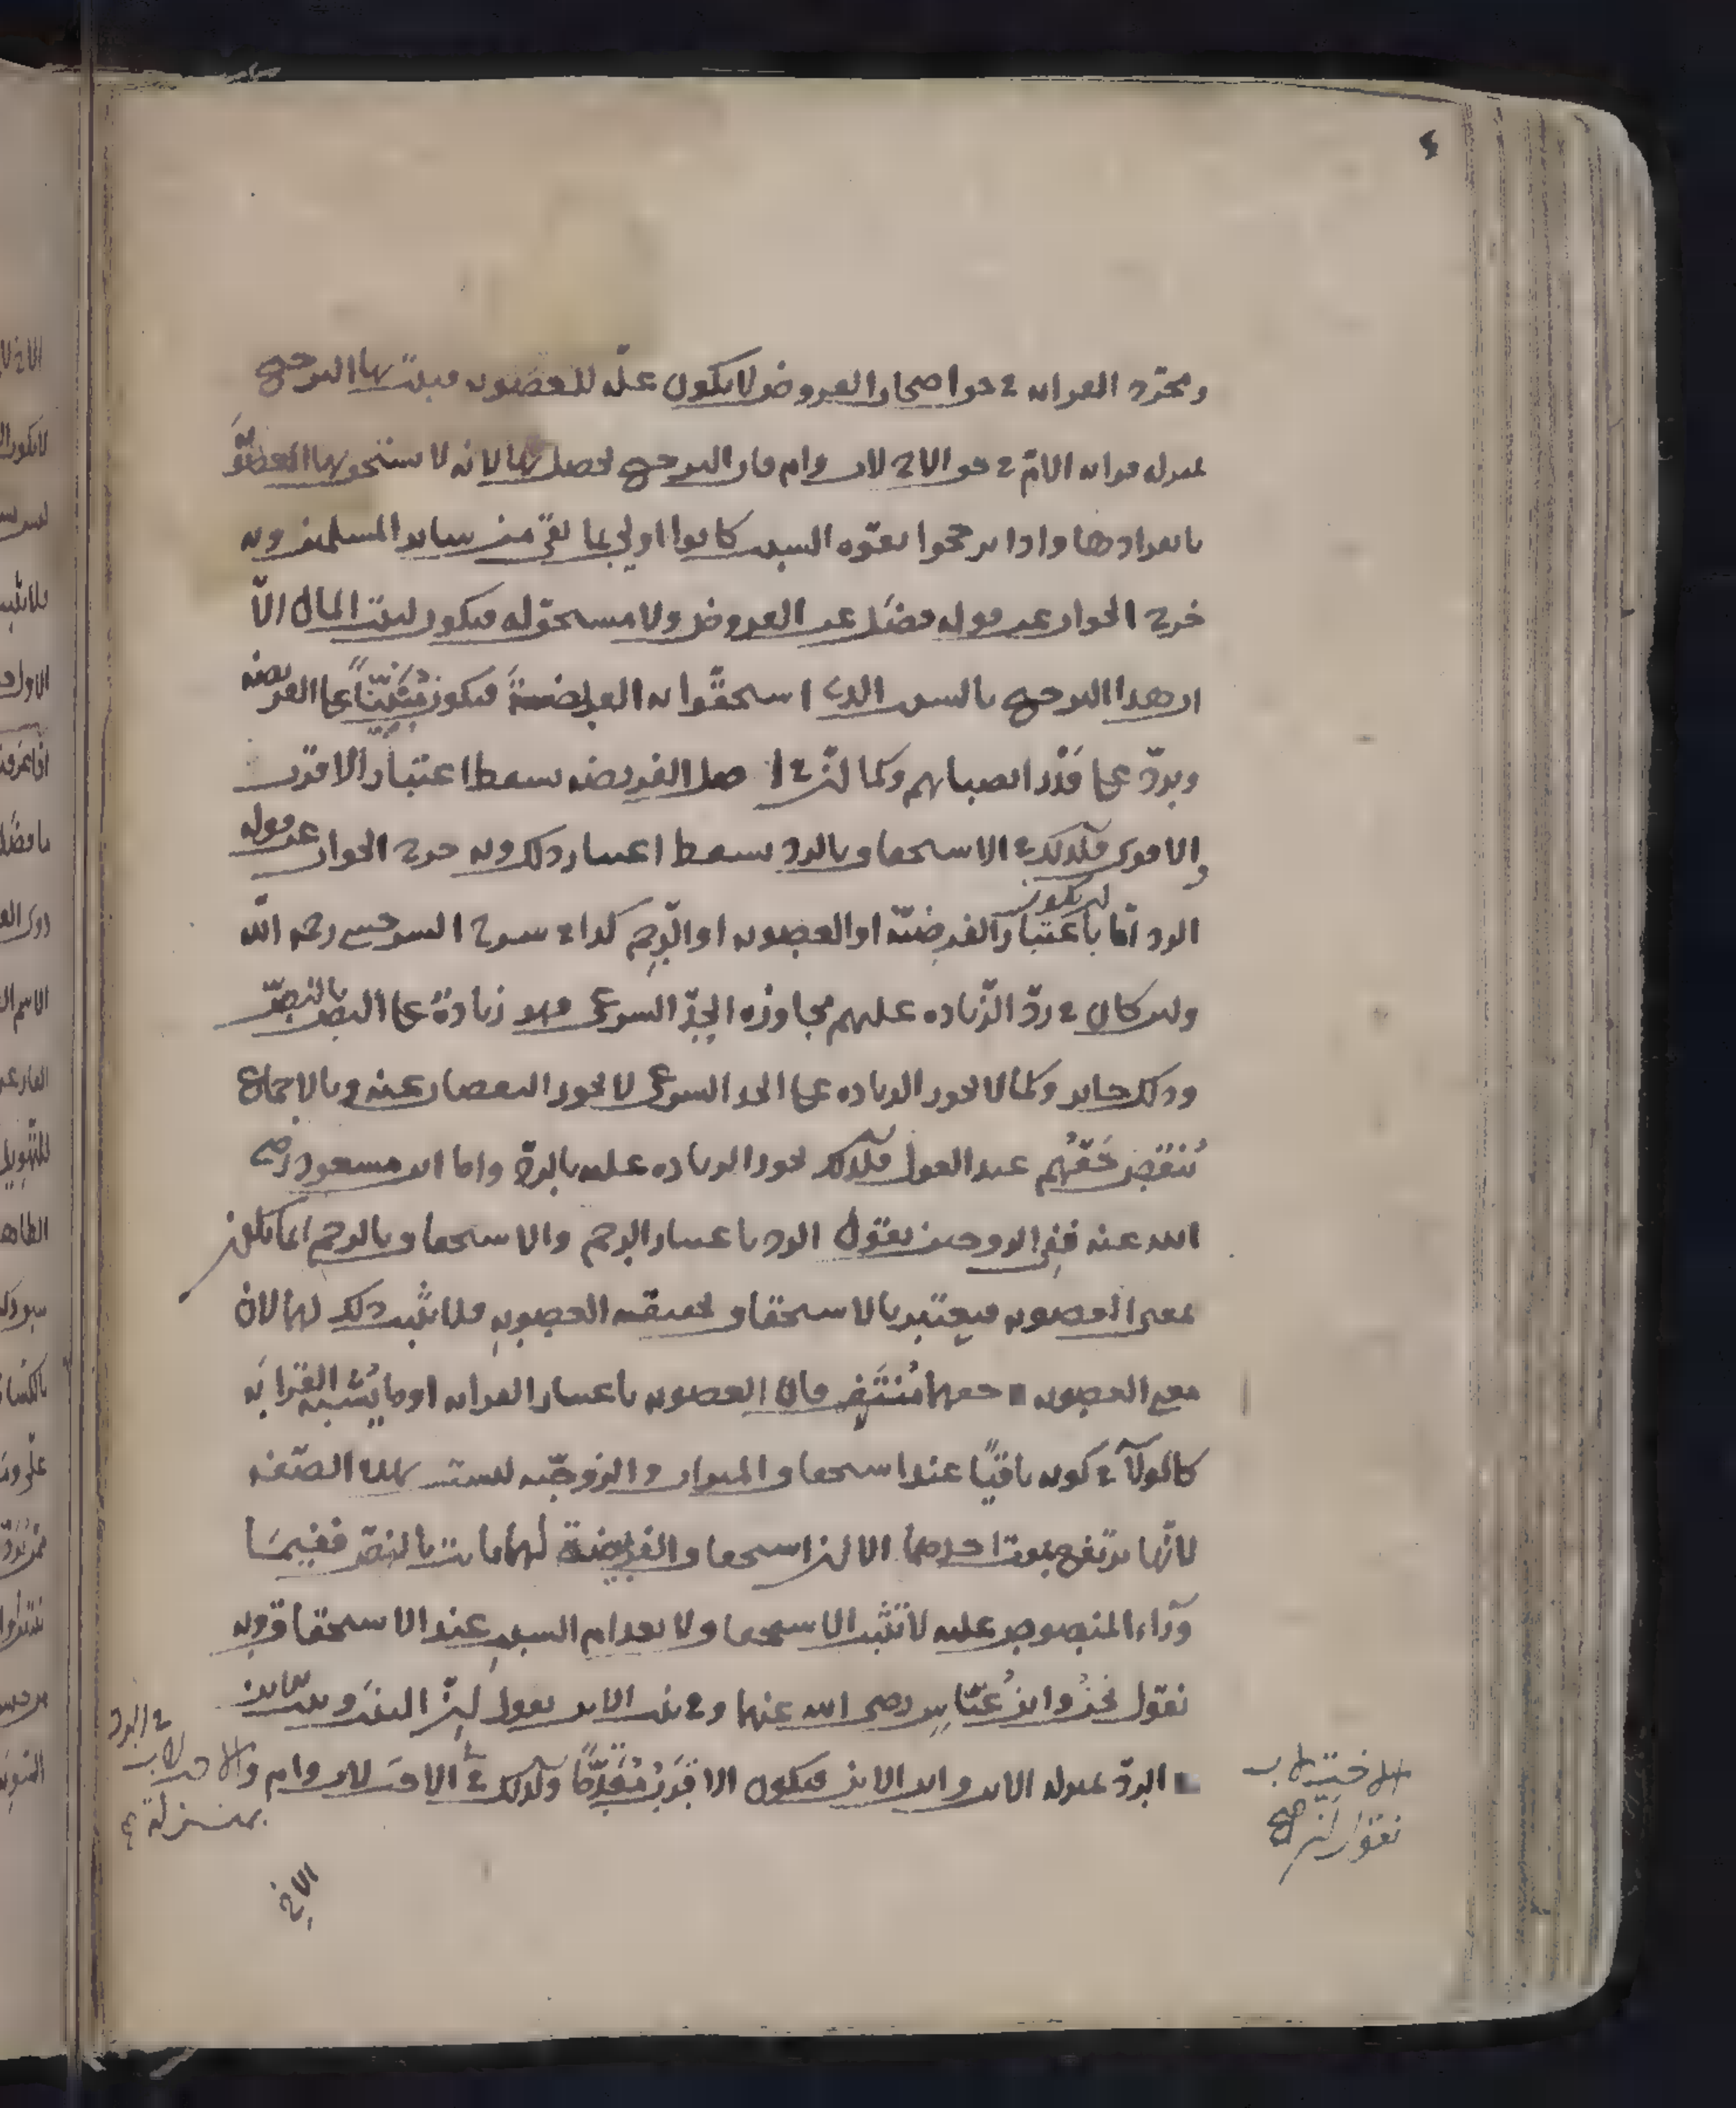 ومجرّد القرابة في حق اصحاب الفروض لا يكون علّة للعصوبة فيثبت بها الترجيح
بمنزلة قرابة الامّ في حق الاخ لاب وام فان الترجيح يحصل بها لانه لا يستحق بها العصوبة
بانفرادها واذا ترجحوا بقوّة السبب كانوا اولى بما بقي من سائر المسلمين وبه
خرج الجواب عن قوله فضَل عن الفروض ولا مستحق له فيكون لبيت المال الّا
ان هذا الترجيح بالسبب الذي استحقّوا به الفريضة فيكون مبنيّاً على الفريضة
ويردّ على قَدْر انصبائهم وكما انّ في اصل الفريضة سقط اعتبار الاقرب
والاقوى فكذلك في الاستحقاق بالرد سقط اعتبار ذلك وبه خرج الجواب عن قوله
الرد امّا ان يكون باعتبار الفرضيّة او العصوبة او الرّحِم كذا في شرح السرخسي رحمه الله
وليس كان في ردّ الزّيادة عليهم مجاوزة الحدّ الشرعي فهو زيادة على النص بالنصّ
وذلك جائز وكما لا يجوز الزيادة على الحد الشرعي لا يجوز النقصان عنه وبالاجماع
يُنْتَقَص حَقّهُم عند العول فكذلك يجوز الزيادة عليه بالردّ واما ابن مسعود رضي
الله عنه ففي الزوجين نقول الرد باعتبار الرحم والاستحقاق بالرحم انما يكون
بمعنى العصوبة فيعتبر بالاستحقاق بحقيقة العصوبة فلا يثبت ذلك لهما لان
معنى العصوبة حقهما مُنتَفٍ فان العصوبة باعتبار القرابة او ما يُشبه القَرابَة
كالولآء في كونه باقيًا عند استحقاق الميراث والزوجيّة ليست بهذه الصّفة
لانّها ترتفع بموت احدهما الا ان استحقاق الفريضة لهما ثابت بالنصّ ففيمَا
وَرآء المنصوص عليه لا تثبت الاستحقاق لانعدام السبب عند الاستحقاق وبه
نقول نحنُ وابن عبّاس رضي الله عنهما وفي بنت الابن نقول انّ البنتَ وبنت الابن
الردّ بمنزلة الابن وابن الابن فيكون الاقرب مُقَدَّمًا وكذلك في الاخت لاب وام والاخت لاب
في الرد
بمنزلة
الاخ
الاخت لاب
نقول ان